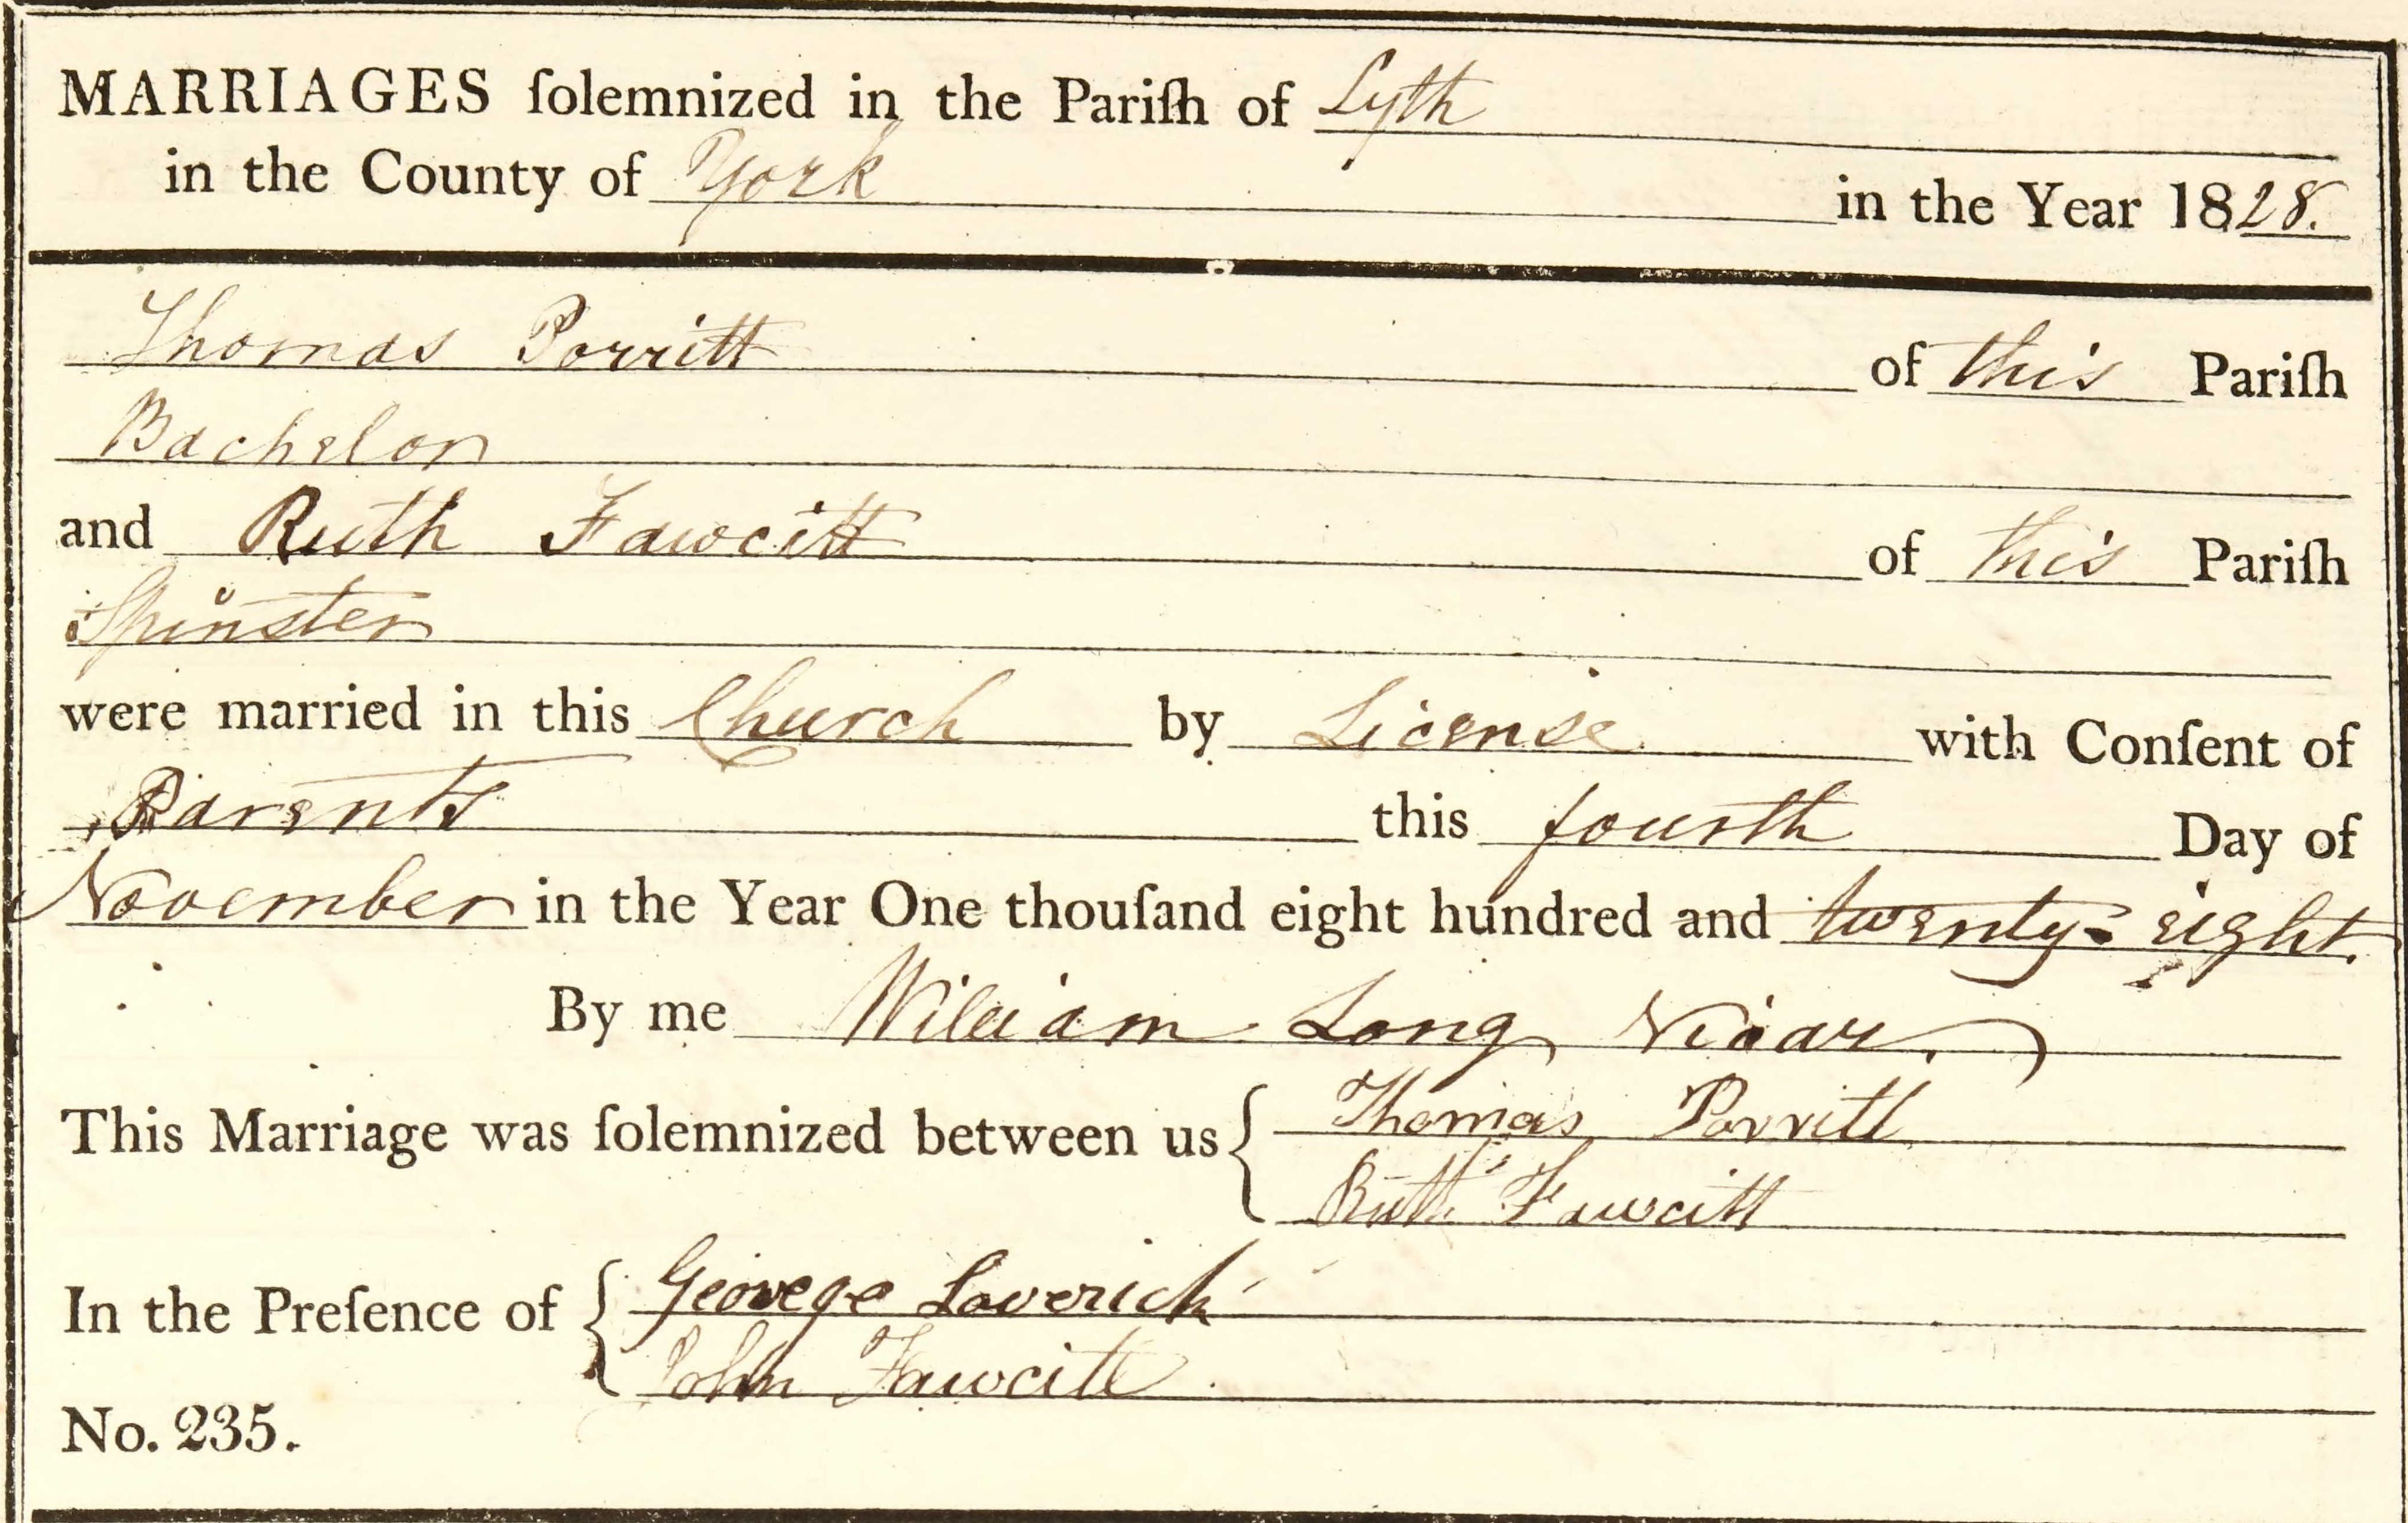 MARRIAGES ſolemnized in the Pariſh of Lyth
in the County of York in the Year 1828.
Thomas Porritt of this Pariſh
Bachelor
and Ruth Fawcitt of this Pariſh
Spinster
were married in this Church by License with Conſent of
Parents this fourth Day of
November in the Year One thouſand eight hundred and twenty-eight.
By me William Long Vicar.
This Marriage was ſolemnized between us { Thomas Porritt
Ruth Fawcitt
In the Preſence of { George Loverick
John Fawcitt
No. 235.